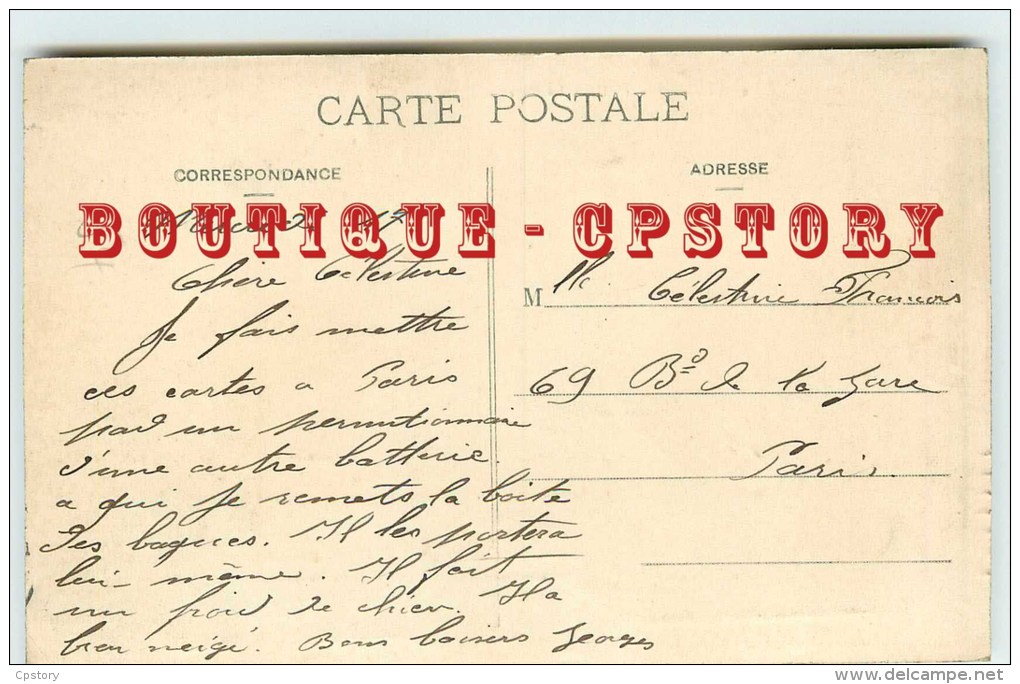 CARTE POSTALE
CORRESPONDANCE
ADRESSE
BOUTIQUE - CPSTORY
Chère Célestine
Je fais mettre
ces cartes a Paris
par un permutionnaire
d'une autre batterie
a qui je remets la boite
des bagues. Il les portera
lui-même. Il fait
un froid de chien. Il a
bien neigé. Bons baisers Georges
Mlle Célestine François
69 Bd de la Gare
Paris
Cpstory
delcampe.net